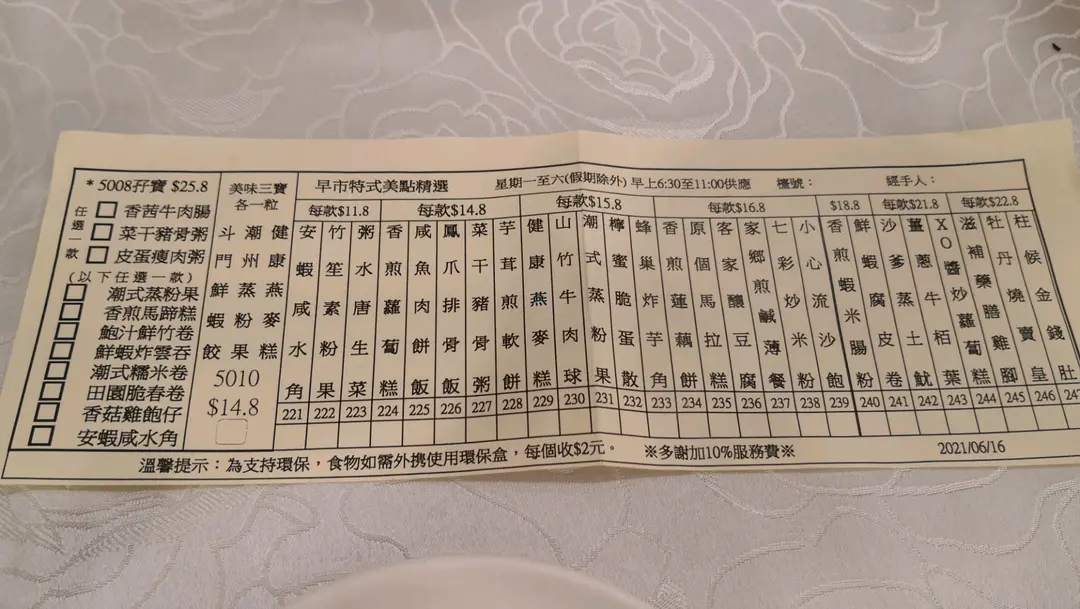 * 5008孖寶 $25.8
任選一款
香茜牛肉腸
菜干豬骨粥
皮蛋瘦肉粥
(以下任選一款)
潮式蒸粉果
香煎馬蹄糕
鮑汁鮮竹卷
鮮蝦炸雲吞
潮式糯米卷
田園脆春卷
香菇雞飽仔
安蝦咸水角
美味三寶
各一粒
斗門鮮蝦餃
潮州蒸粉果
健康燕麥糕
5010
$14.8
早市特式美點精選 星期一至六(假期除外) 早上6:30至11:00供應 檯號： 經手人：
每款$11.8
安蝦咸水角 221
竹笙素粉果 222
粥水唐生菜 223
每款$14.8
香煎蘿蔔糕 224
咸魚肉餅飯 225
鳳爪排骨飯 226
菜干豬骨粥 227
芋茸煎軟餅 228
每款$15.8
健康燕麥糕 229
山竹牛肉球 230
潮式蒸粉果 231
檸蜜脆蛋散 232
每款$16.8
蜂巢炸芋角 233
香煎蓮藕餅 234
原個馬拉糕 235
客家釀豆腐 236
家鄉煎鹹薄餐 237
七彩炒米粉 238
小心流沙飽 239
$18.8
香煎蝦米腸粉 240
每款$21.8
鮮蝦腐皮卷 241
沙爹蒸土魷 242
薑蔥牛栢葉 243
每款$22.8
XO醬炒蘿蔔糕 244
滋補藥膳雞腳 245
牡丹燒賣皇 246
柱候金錢肚 247
溫馨提示：為支持環保，食物如需外攜使用環保盒，每個收$2元。 ※多謝加10%服務費※ 2021/06/16